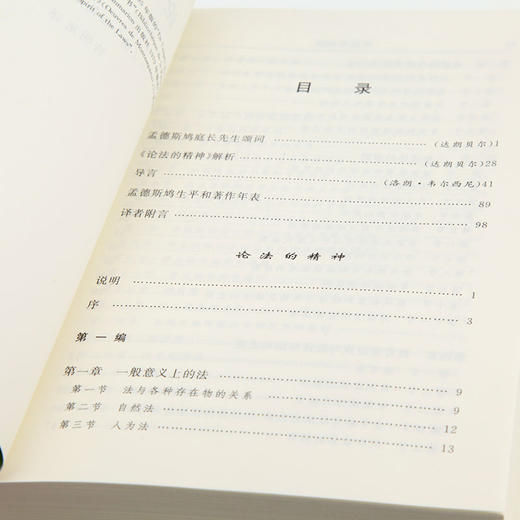 目 录
孟德斯鸠庭长先生颂词 ………… (达朗贝尔)1
《论法的精神》解析 ………… (达朗贝尔)28
导言 ………… (洛朗·韦尔西尼)41
孟德斯鸠生平和著作年表 ………… 89
译者附言 ………… 98
论 法 的 精 神
说明 ………… 1
序 ………… 3
第 一 编
第一章 一般意义上的法 ………… 9
第一节 法与各种存在物的关系 ………… 9
第二节 自然法 ………… 12
第三节 人为法 ………… 13